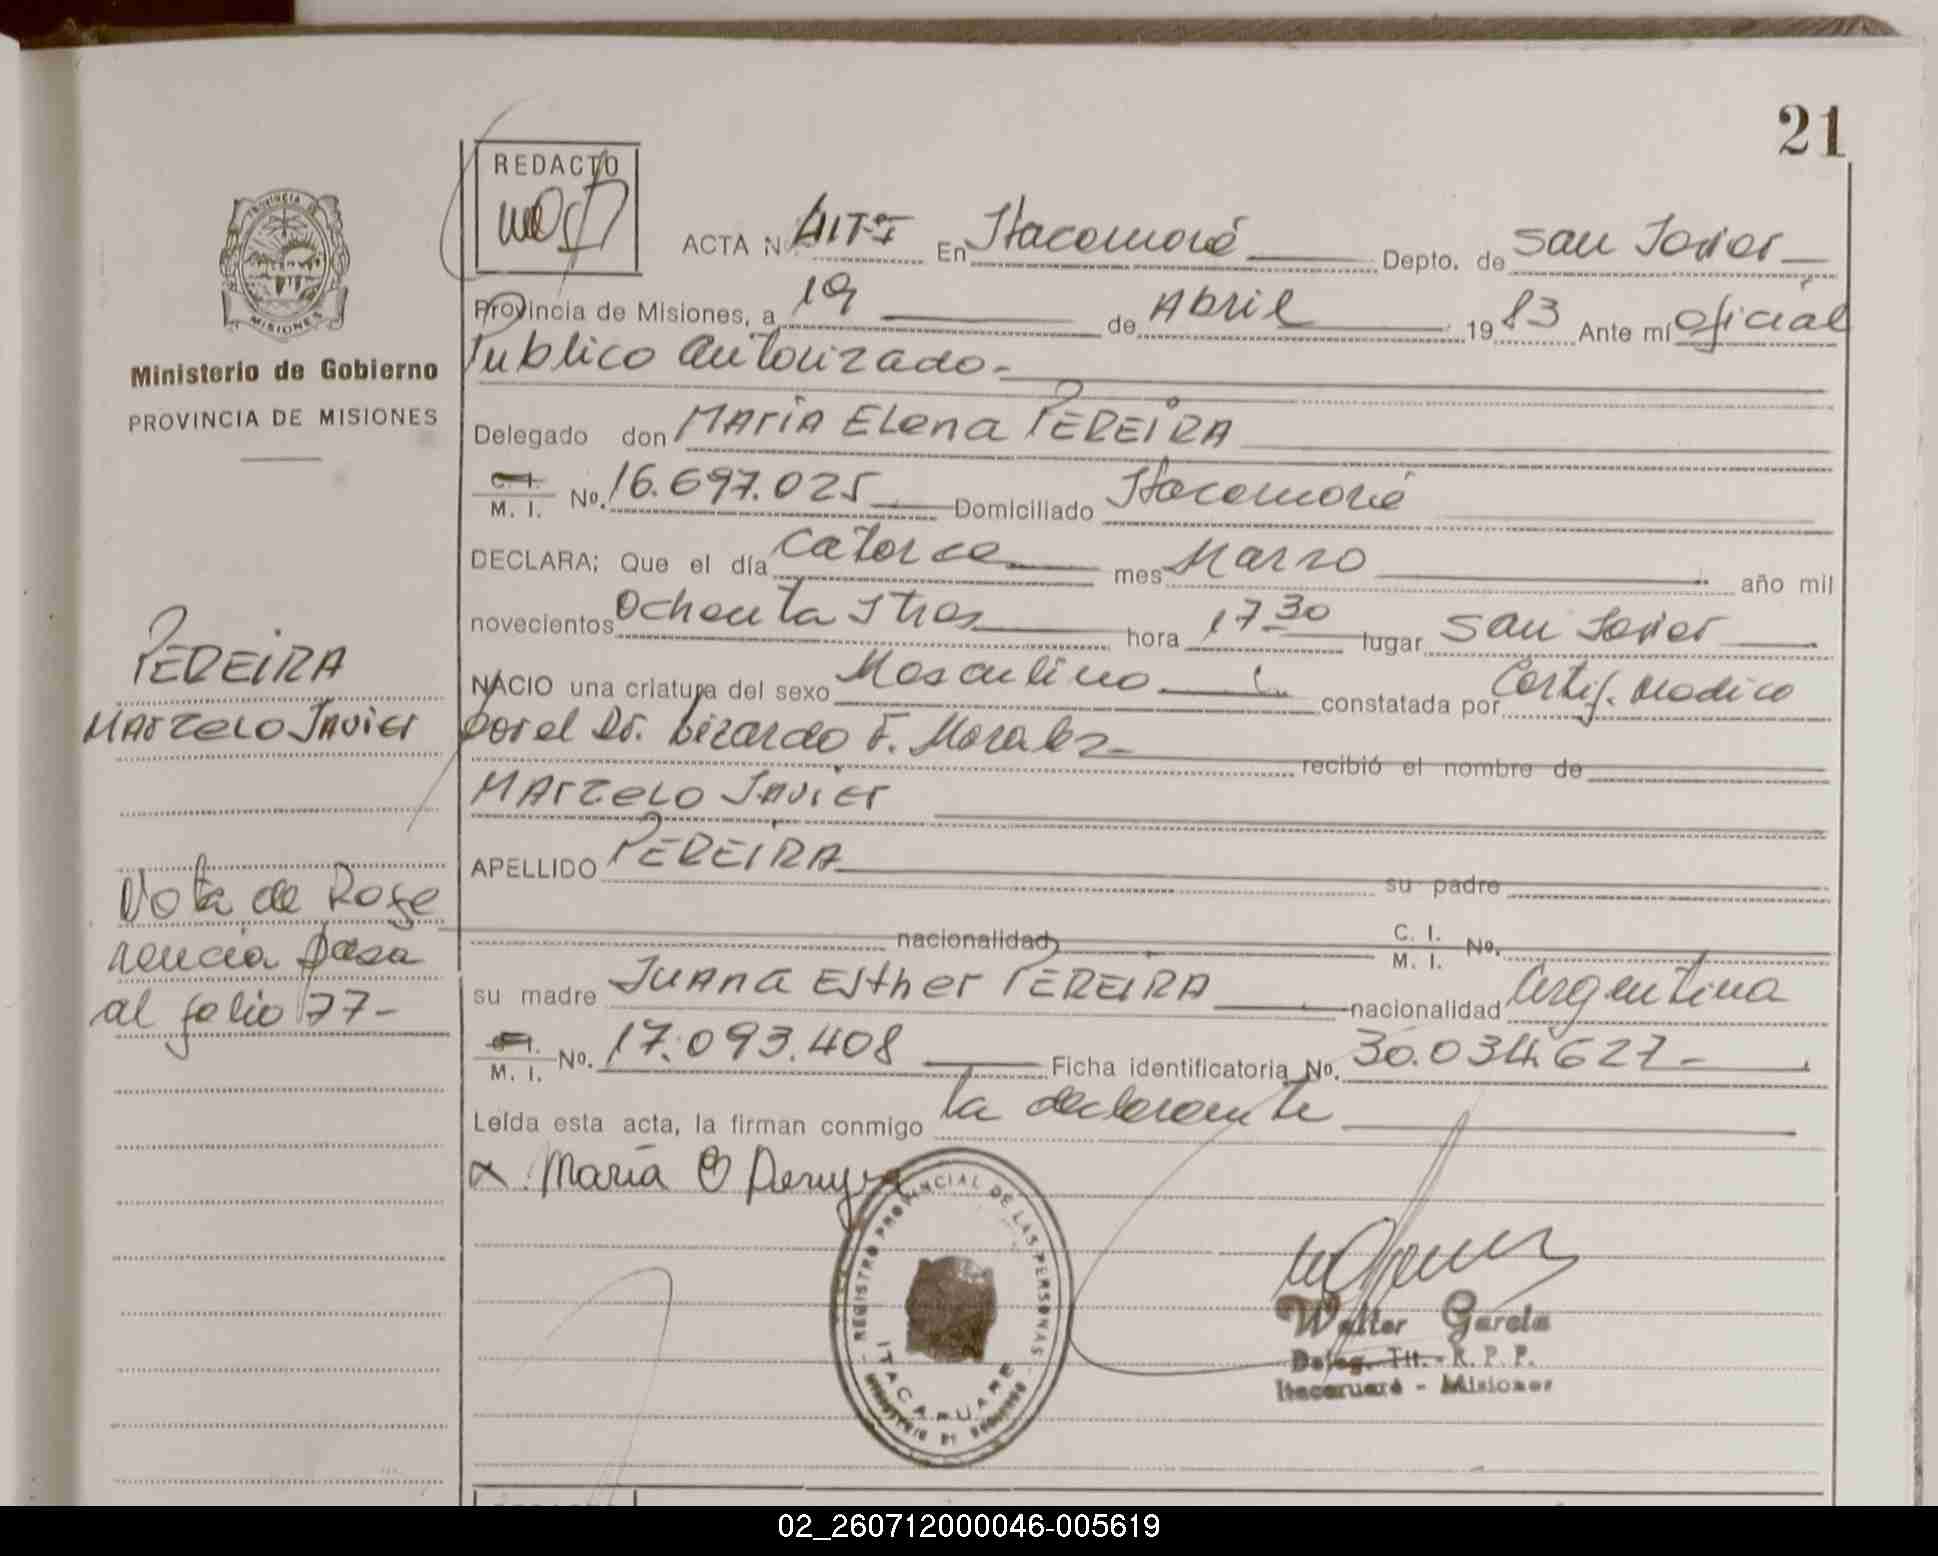 21
REDACTO
PROVINCIA DE
MISIONES
Ministerio de Gobierno
PROVINCIA DE MISIONES
ACTA Nº 41T-I En Itacaruaré Depto. de San Javier
Provincia de Misiones, a 19 de Abril 1983 Ante mí Oficial
Publico Autorizado.-
Delegado don María Elena PEREIRA
C. I.
M. I. Nº. 16.697.025 Domiciliado Itacaruaré
DECLARA; Que el día Catorce mes Marzo año mil
novecientos Ochenta y tres hora 17-30 lugar San Javier
NACIO una criatura del sexo Masculino constatada por Certif. Medico
por el Dr. Lizardo F. Morales recibió el nombre de
Marcelo Javier
APELLIDO PEREIRA su padre
nacionalidad C. I.
M. I. Nº.
su madre Juana Esther PEREIRA nacionalidad Argentina
C. I.
M. I. Nº. 17.093.408 Ficha identificatoria Nº. 30.034.627-
Leída esta acta, la firman conmigo la declarante
PEREIRA
Marcelo Javier
Nota de Refe
rencia pasa
al folio 77-
x María E Pereyra
REGISTRO PROVINCIAL DE LAS PERSONAS
ITACARUARE
MINISTERIO DE GOBIERNO
Walter García
Deleg. Tit. - R. P. P.
Itacaruaré - Misiones
02_260712000046-005619